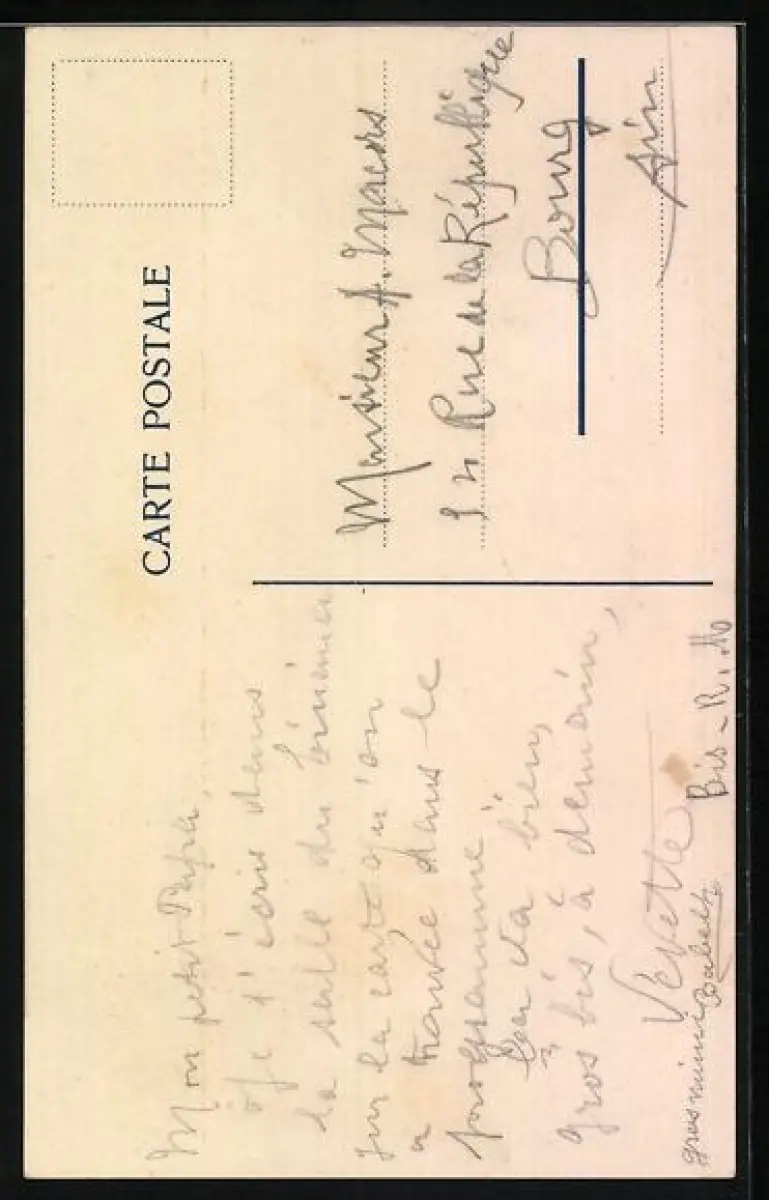 CARTE POSTALE
Mon petit Papa,
Je t'écris dans
la salle du cinéma
sur la carte qu'on
a trouvée dans le
programme
va bien,
gros bis, à demain,
Vevette
gros mimi Babeth
Bis - R. M
Monsieur A. Macors
Rue de la République
Bourg
Ain